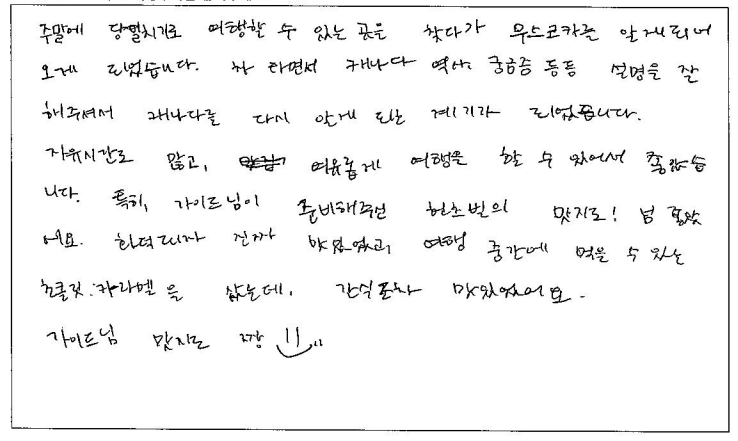 주말에 당일치기로 여행할 수 있는 곳을 찾다가 무스코카를 알게되어
오게 되었습니다. 차 타면서 캐나다 역사, 궁금증 등등 설명을 잘
해주셔서 캐나다를 다시 알게 되는 계기가 되었습니다.
자유시간도 많고, 여유롭게 여행을 할 수 있어서 좋았습
니다. 특히, 가이드님이 준비해주신 현초빈의 맛지도! 넘 좋았
어요. 진짜 맛있었고, 여행 중간에 먹을 수 있는
초콜릿, 카라멜을 샀는데, 간식조차 맛있었어요.
가이드님 맛지도 짱